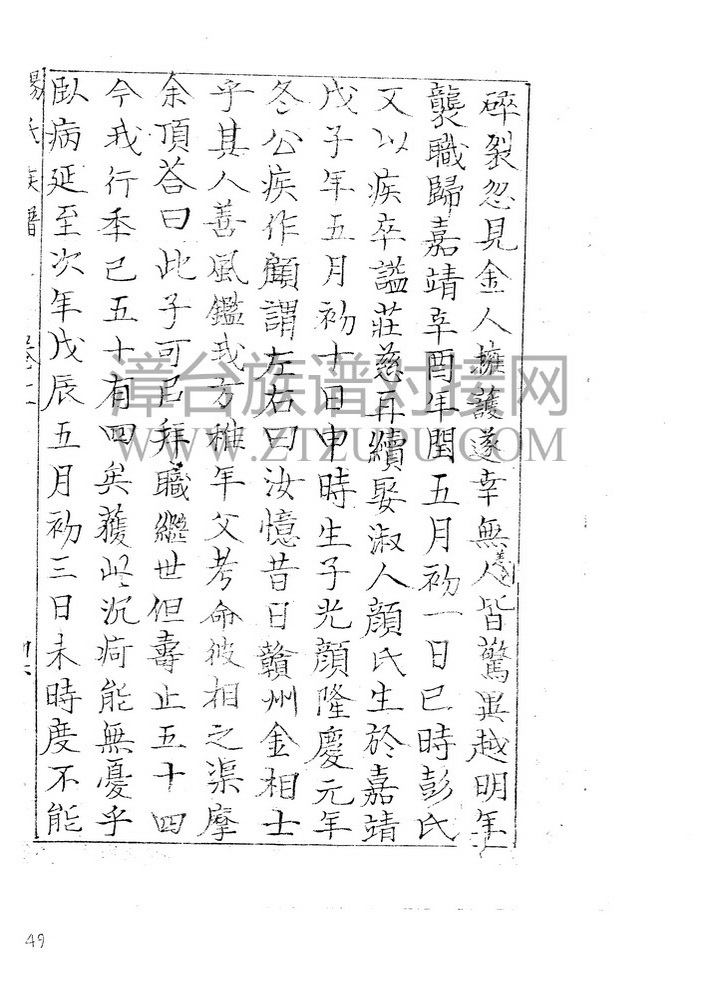 碎裂忽見金人擁護遂幸無義人皆驚異越明年
襲職歸嘉靖辛酉年閏五月初一日巳時彭氏
又以疾卒謚莊慈再續娶淑人顏氏生於嘉靖
戊子年五月初十日申時生子光顏隆慶元年
冬公疾作顧謂左右曰汝憶昔日贛州金相士
乎其人善風鑑我方稚年父考命彼相之渠摩
余頂荅曰此子可已拜職繼世但壽止五十四
今我行年已五十有四矣獲此沉疴能無憂乎
臥病延至次年戊辰五月初三日未時度不能
楊氏族譜
漳台族谱对接网
WWW.ZTZUPU.COM
49